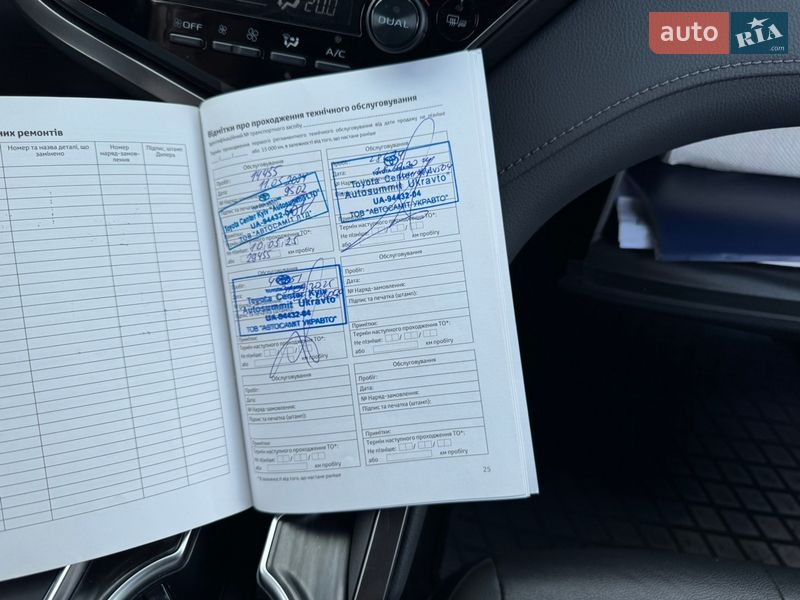 OFF
20.0
DUAL
A/C
auto RIA.com
них ремонтів
Номер та назва деталі, що замінено
Номер наряд-замовлення
Підпис, штамп Дилера
Відмітки про проходження технічного обслуговування
Ідентифікаційний № транспортного засобу
Термін проходження першого регламентного технічного обслуговування від дати продажу не пізніше
або, 15 000 км, в залежності від того, що настане раніше
Обслуговування
Пробіг: 14455
Дата: 11.05.2024
9502
Toyota Center Kyiv "Autosummit LTD"
UA-94432-04
ТОВ "АВТОСАМІТ ЛТД"
Термін наступного проходження ТО*:
Не пізніше: 10.05.25
або 29455 км пробігу
Обслуговування
Toyota Center Kyiv
"Autosummit Ukravto"
UA-94432-04
ТОВ "АВТОСАМІТ УКРАВТО"
Термін наступного проходження ТО*:
Не пізніше:
або км пробігу
Toyota Center Kyiv
"Autosummit Ukravto"
UA-94432-04
ТОВ "АВТОСАМІТ УКРАВТО"
Примітки:
Термін наступного проходження ТО*:
Не пізніше:
або км пробігу
Обслуговування
Пробіг:
Дата:
№ Наряд-замовлення:
Підпис та печатка (штамп):
Примітки:
Термін наступного проходження ТО*:
Не пізніше:
або км пробігу
Обслуговування
Пробіг:
Дата:
№ Наряд-замовлення:
Підпис та печатка (штамп):
Примітки:
Термін наступного проходження ТО*:
Не пізніше:
або км пробігу
Обслуговування
Пробіг:
Дата:
№ Наряд-замовлення:
Підпис та печатка (штамп):
Примітки:
Термін наступного проходження ТО*:
Не пізніше:
або км пробігу
*В залежності від того, що настане раніше
25